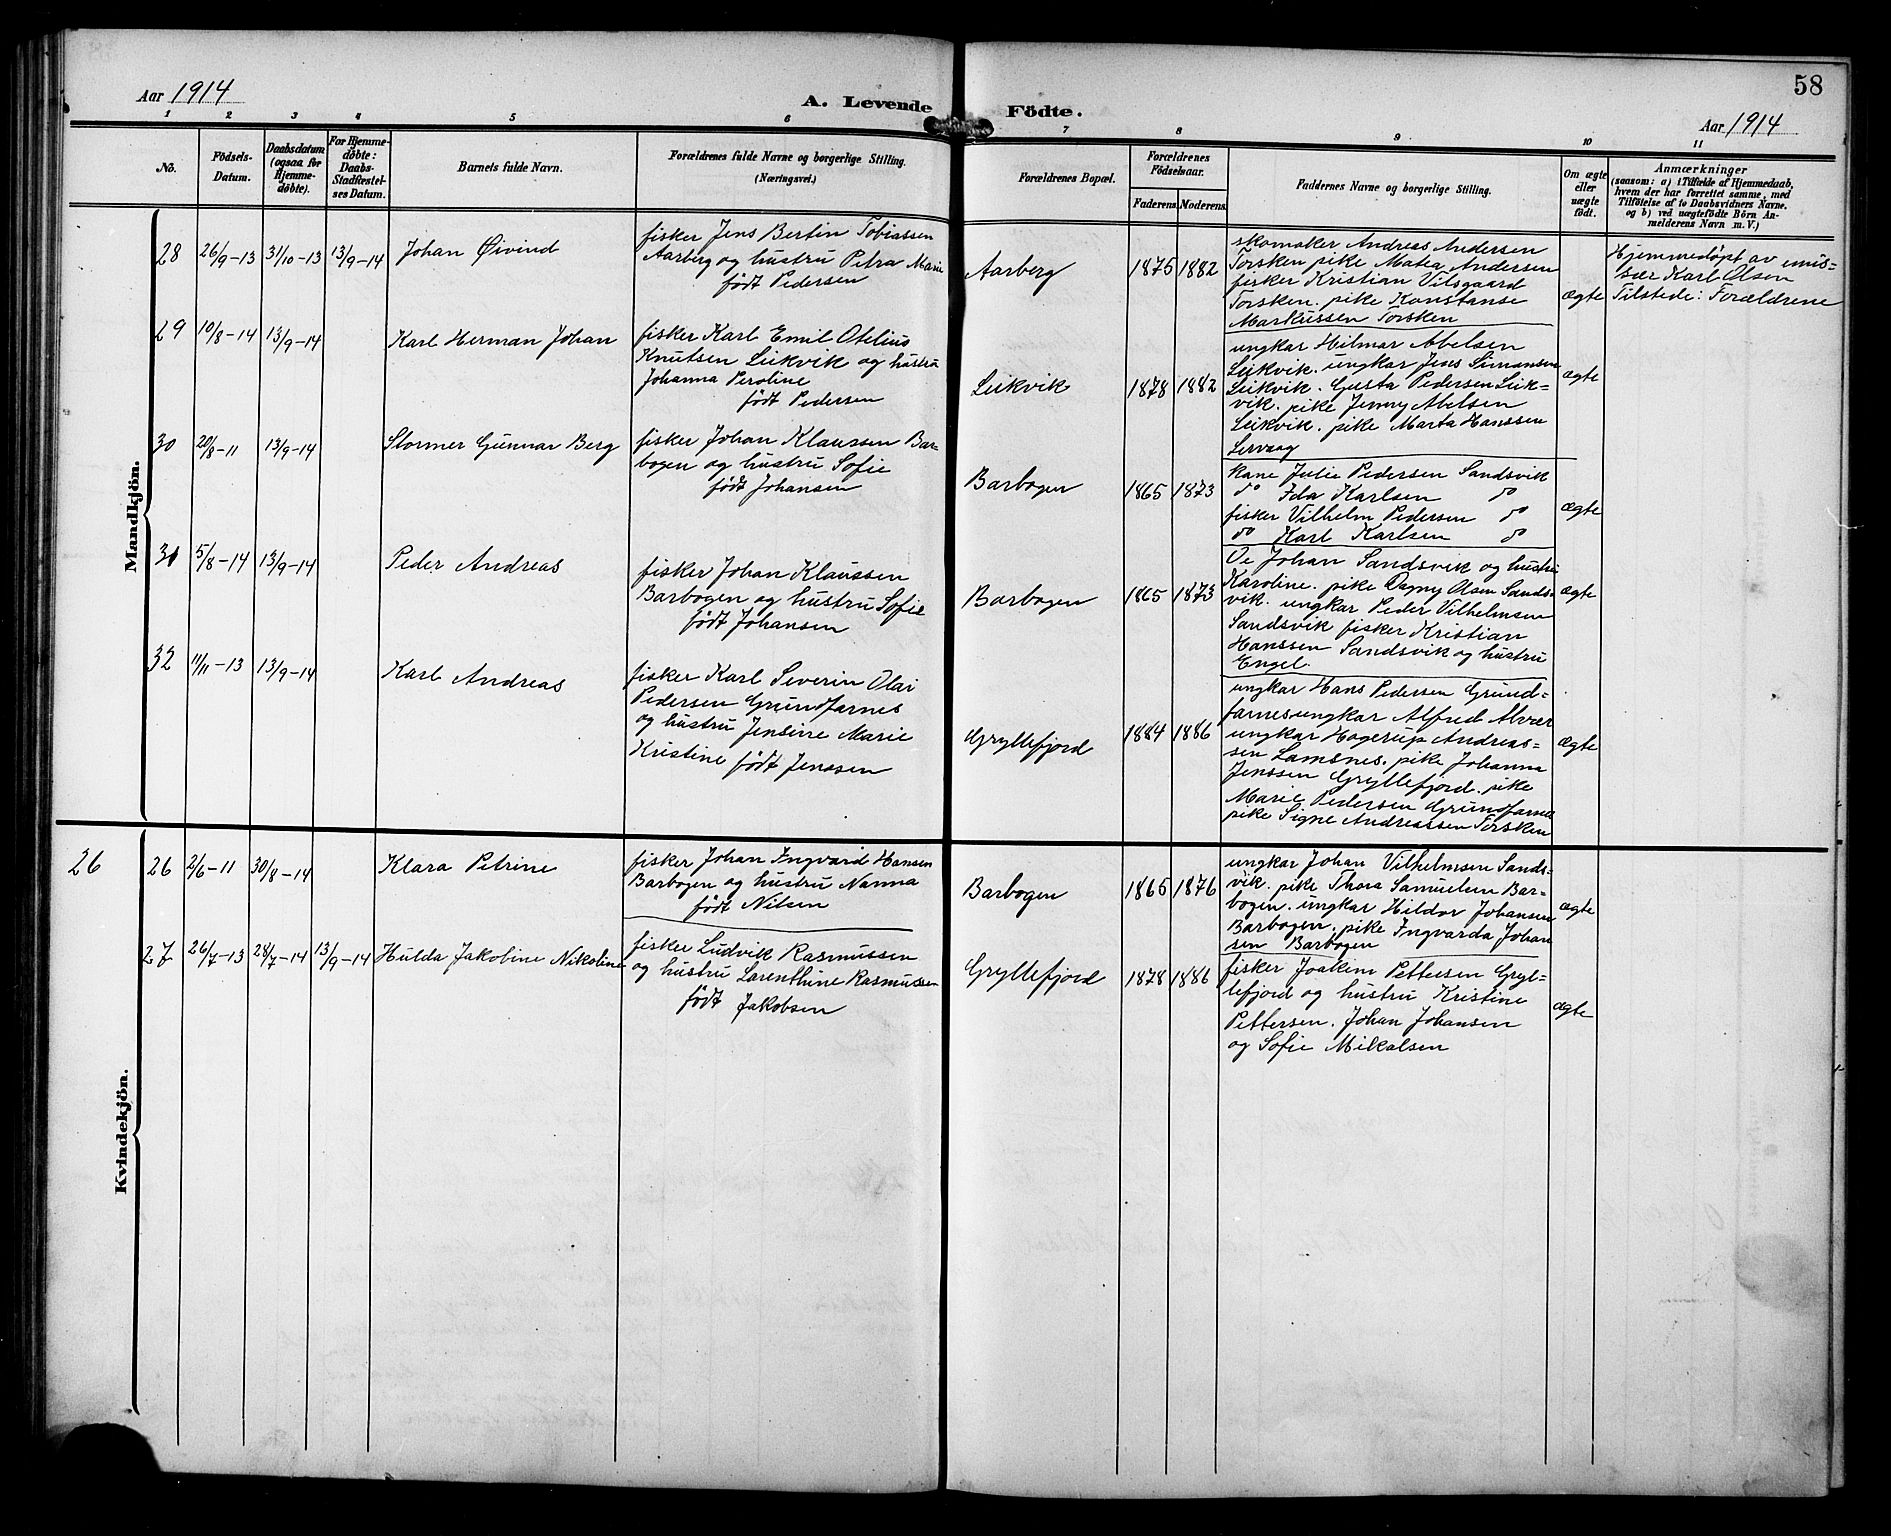 58
Aar 1914
A. Levende Födte.
Aar 1914
1 2 3 4 5 6 7 8 9 10 11
No.
Födsels-
Datum.
Daabsdatum
(ogsaa for
Hjemme-
döbte).
For Hjemme-
döbte:
Daabs-
Stadfæstel-
ses Datum.
Barnets fulde Navn.
Forældrenes fulde Navne og borgerlige Stilling.
(Næringsvei.)
Forældrenes Bopæl.
Forældrenes
Födselsaar.
Faderens. Moderens.
Faddernes Navne og borgerlige Stilling.
Om ægte
eller
uægte
födt.
Anmærkninger
(saasom: a) i Tilfælde af Hjemmedaab,
hvem der har forrettet samme, med
Tilföielse af to Daabsvidners Navne.
og b) ved uægtefödte Börn An-
melderens Navn m. V.)
Mandkjön.
28 26/9-13 31/10-13 13/9-14 Johan Øivind
fisker Jens Bertin Tobiassen
Aarberg og hustru Petra Marie
født Pedersen
Aarberg 1875 1882
skomaker Andreas Andersen
Torsken pike Matea Andersen
fisker Kristian Vilsgaard
Torsken. pike Konstanse
Markussen Torsken
ægte
Hjemmedøpt av emis-
sær Karl Olsen
Tilstede: Forældrene
29 10/8-14 13/9-14 Karl Herman Johan
fisker Karl Emil Otelius
Knutsen Leikvik og hustru
Johanna Peroline
født Pedersen
Leikvik 1878 1882
ungkar Hilmar Abelsen
Leikvik. ungkar Jens Simonsen
Leikvik. Gusta Pedersen Leik-
vik. pike Jenny Abelsen
Leikvik. pike Marta Hanssen
Lervaag
ægte
30 20/8-11 13/9-14 Stormer Gunnar Berg
fisker Johan Klaussen Bar-
bogen og hustru Sofie
født Johansen
Barbogen 1865 1873
kone Julie Pedersen Sandsvik
do Ida Karlsen do
fisker Vilhelm Pedersen do
do Karl Karlsen do
ægte
31 5/8-14 13/9-14 Peder Andreas
fisker Johan Klaussen
Barbogen og hustru Sofie
født Johansen
Barbogen 1865 1873
Oe Johan Sandsvik og hustru
Karoline. pike Dagny Olsen Sands-
vik. ungkar Peder Vilhelmsen
Sandsvik fisker Kristian
Hanssen Sandsvik og hustru
Engel.
ægte
32 11/11-13 13/9-14 Karl Andreas
fisker Karl Severin Olai
Pedersen Grundfarnes
og hustru Jensine Marie
Kristine født Jenssen
Gryllefjord 1884 1886
ungkar Hans Pedersen Grund-
farnes ungkar Alfred Alvær
ungkar Hagerup Andreas-
sen Lamsnes. pike Johanna
Jenssen Gryllefjord. pike
Marie Pedersen Grundfarnes
pike Signe Andreassen Torsken
ægte
Kvindekjön.
26
26 2/6-11 30/8-14 Klara Petrine
fisker Johan Ingvard Hansen
Barbogen og hustru Nanna
født Nilsen
Barbogen 1865 1876
ungkar Johan Vilhelmsen Sands-
vik. pike Thora Samuelsen Bar-
bogen. ungkar Hildor Johansen
Barbogen. pike Ingvarda Johan
sen Barbogen
ægte
27 26/7-13 28/7-14 13/9-14 Hulda Jakobine Nikoline
fisker Ludvik Rasmussen
og hustru Larenthine Rasmussen
født Jakobsen
Gryllefjord 1878 1886
fisker Joakim Pettersen Gryl-
lefjord og hustru Kristine
Pettersen. Johan Johansen
og Sofie Mikalsen
ægte